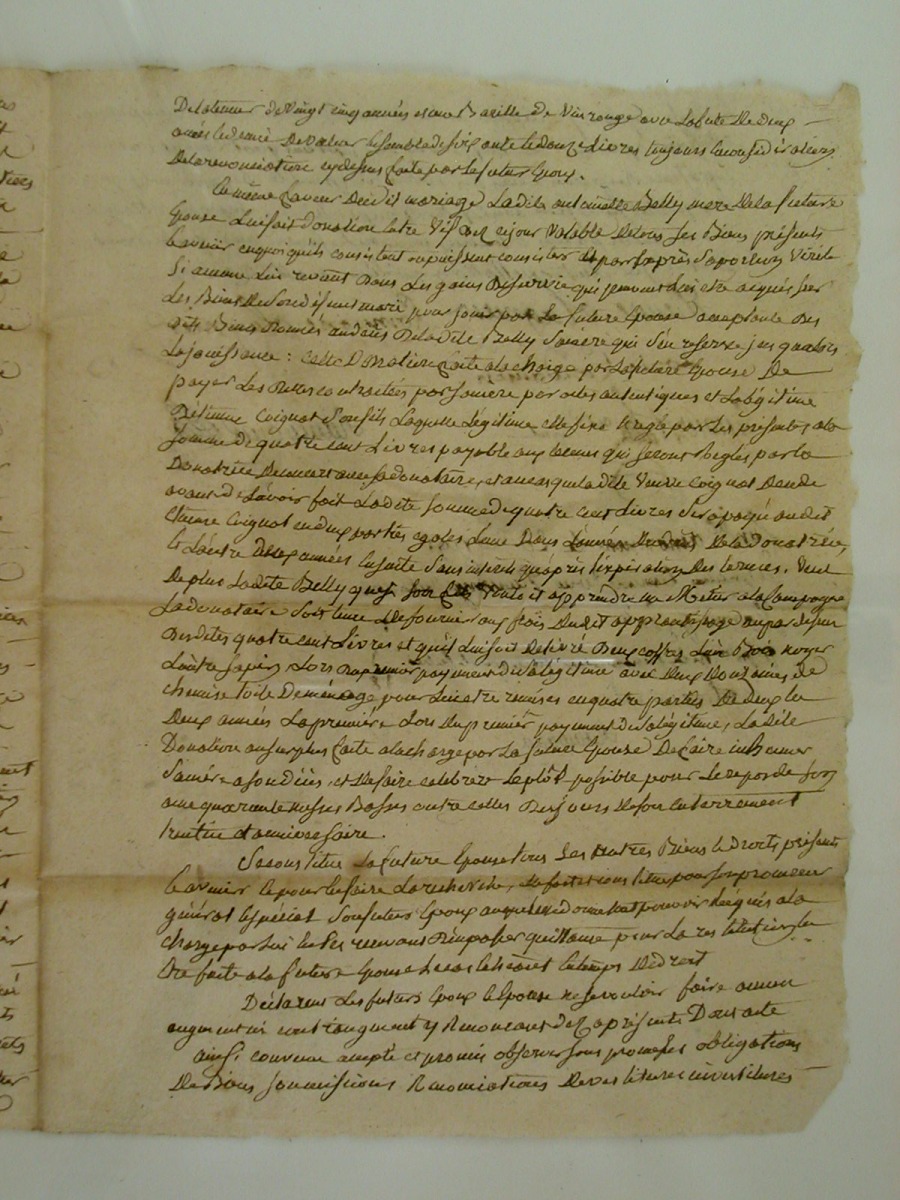 De la teneur de vingt cinq années et une Barille de vin rouge avec la futte de deux
années le dernié de valeur ensemble de soixante et Douze Livres toujours en considération
De la renonciation cy dessus faite par Le futur Epoux.
En même faveur Dudit mariage Ladite antoinette Belly mere de la future
Epouse Lui fait donation Entre Vifs dez ce jour valable de tous ses Biens présents
& avenir en quoi qu'ils consistent ou puissent consister
si aucune Lui revient Dans Les gains De survie qui peuvent Lui etre acquis sur
Les Biens de son défunt mari pour jouir par La future Epouse acceptante Des
dits Biens Donnés au décès De la dite Belly sa mère qui s'en reserve jusqu'alors
La jouissance : cette Donation faite a la charge par La future Epouse De
payer Les Dettes contractées par sa mere par actes autentiques et La légitime
D'étienne Coignat son fils Laquelle Légitime elle fixe & regle par Les présentes a la
somme de quatre cent Livres payable aux termes qui seront Reglés par la
Donatrice De concert avec sa donataire, et au cas que la dite Veuve Coignat Decede
avant de L'avoir fait Ladite somme de quatre cent Livres sera payé audit
Etienne Coignat en deux parties egales L'une Dans L'année du décès De la Donatrice,
& L'autre Deux années Ensuite sans interets qu'après L'expiration Des termes. Veut
De plus Ladite Belly que son fils apprendre un Métier a la Campagne
La donataire soit tenue De fournir aux frais Dudit apprentissage au par dessus
Desdites quatre cent Livres et qu'il Lui soit Delivré Deux coffres L'un Bois noyer
L'autre sapin, Lors Du premier payement de sa légitime avec Deux Douzaines de
chemise toile De ménage pour Lui etre remises en quatre parties De Deux en
Deux années La première Lors du premier payement de sa légitime, La dite
Donation au surplus faite a la charge par La future Epouse De faire inhumer
sa mère a son décès, et De faire celebrer Le plutôt possible pour Le repos de son
ame quarante messes Basses outre celles Des jours De son Enterrement
trentin et anniversaire.
Se constitue La future Epouse tous ses autres Biens & Droits présents
& avenir & pour En faire La recherche, Elle fait et constitue pour son procureur
général & spécial son futur Epoux auquel elle donne tout pouvoir requis a la
charge par Lui En Les recevant D'en passer quittance pour La restitution En
etre faite a la future Epouse Le cas Echéant En temps De Droit
Déclarent Les futurs Epoux & Epouse ne se vouloir faire aucun
augment ni contraugment y Renoncent dez a présent, Dont acte
ainsi convenu accepté et promis observer sous promesses obligations
De Biens soumissions Renonciations